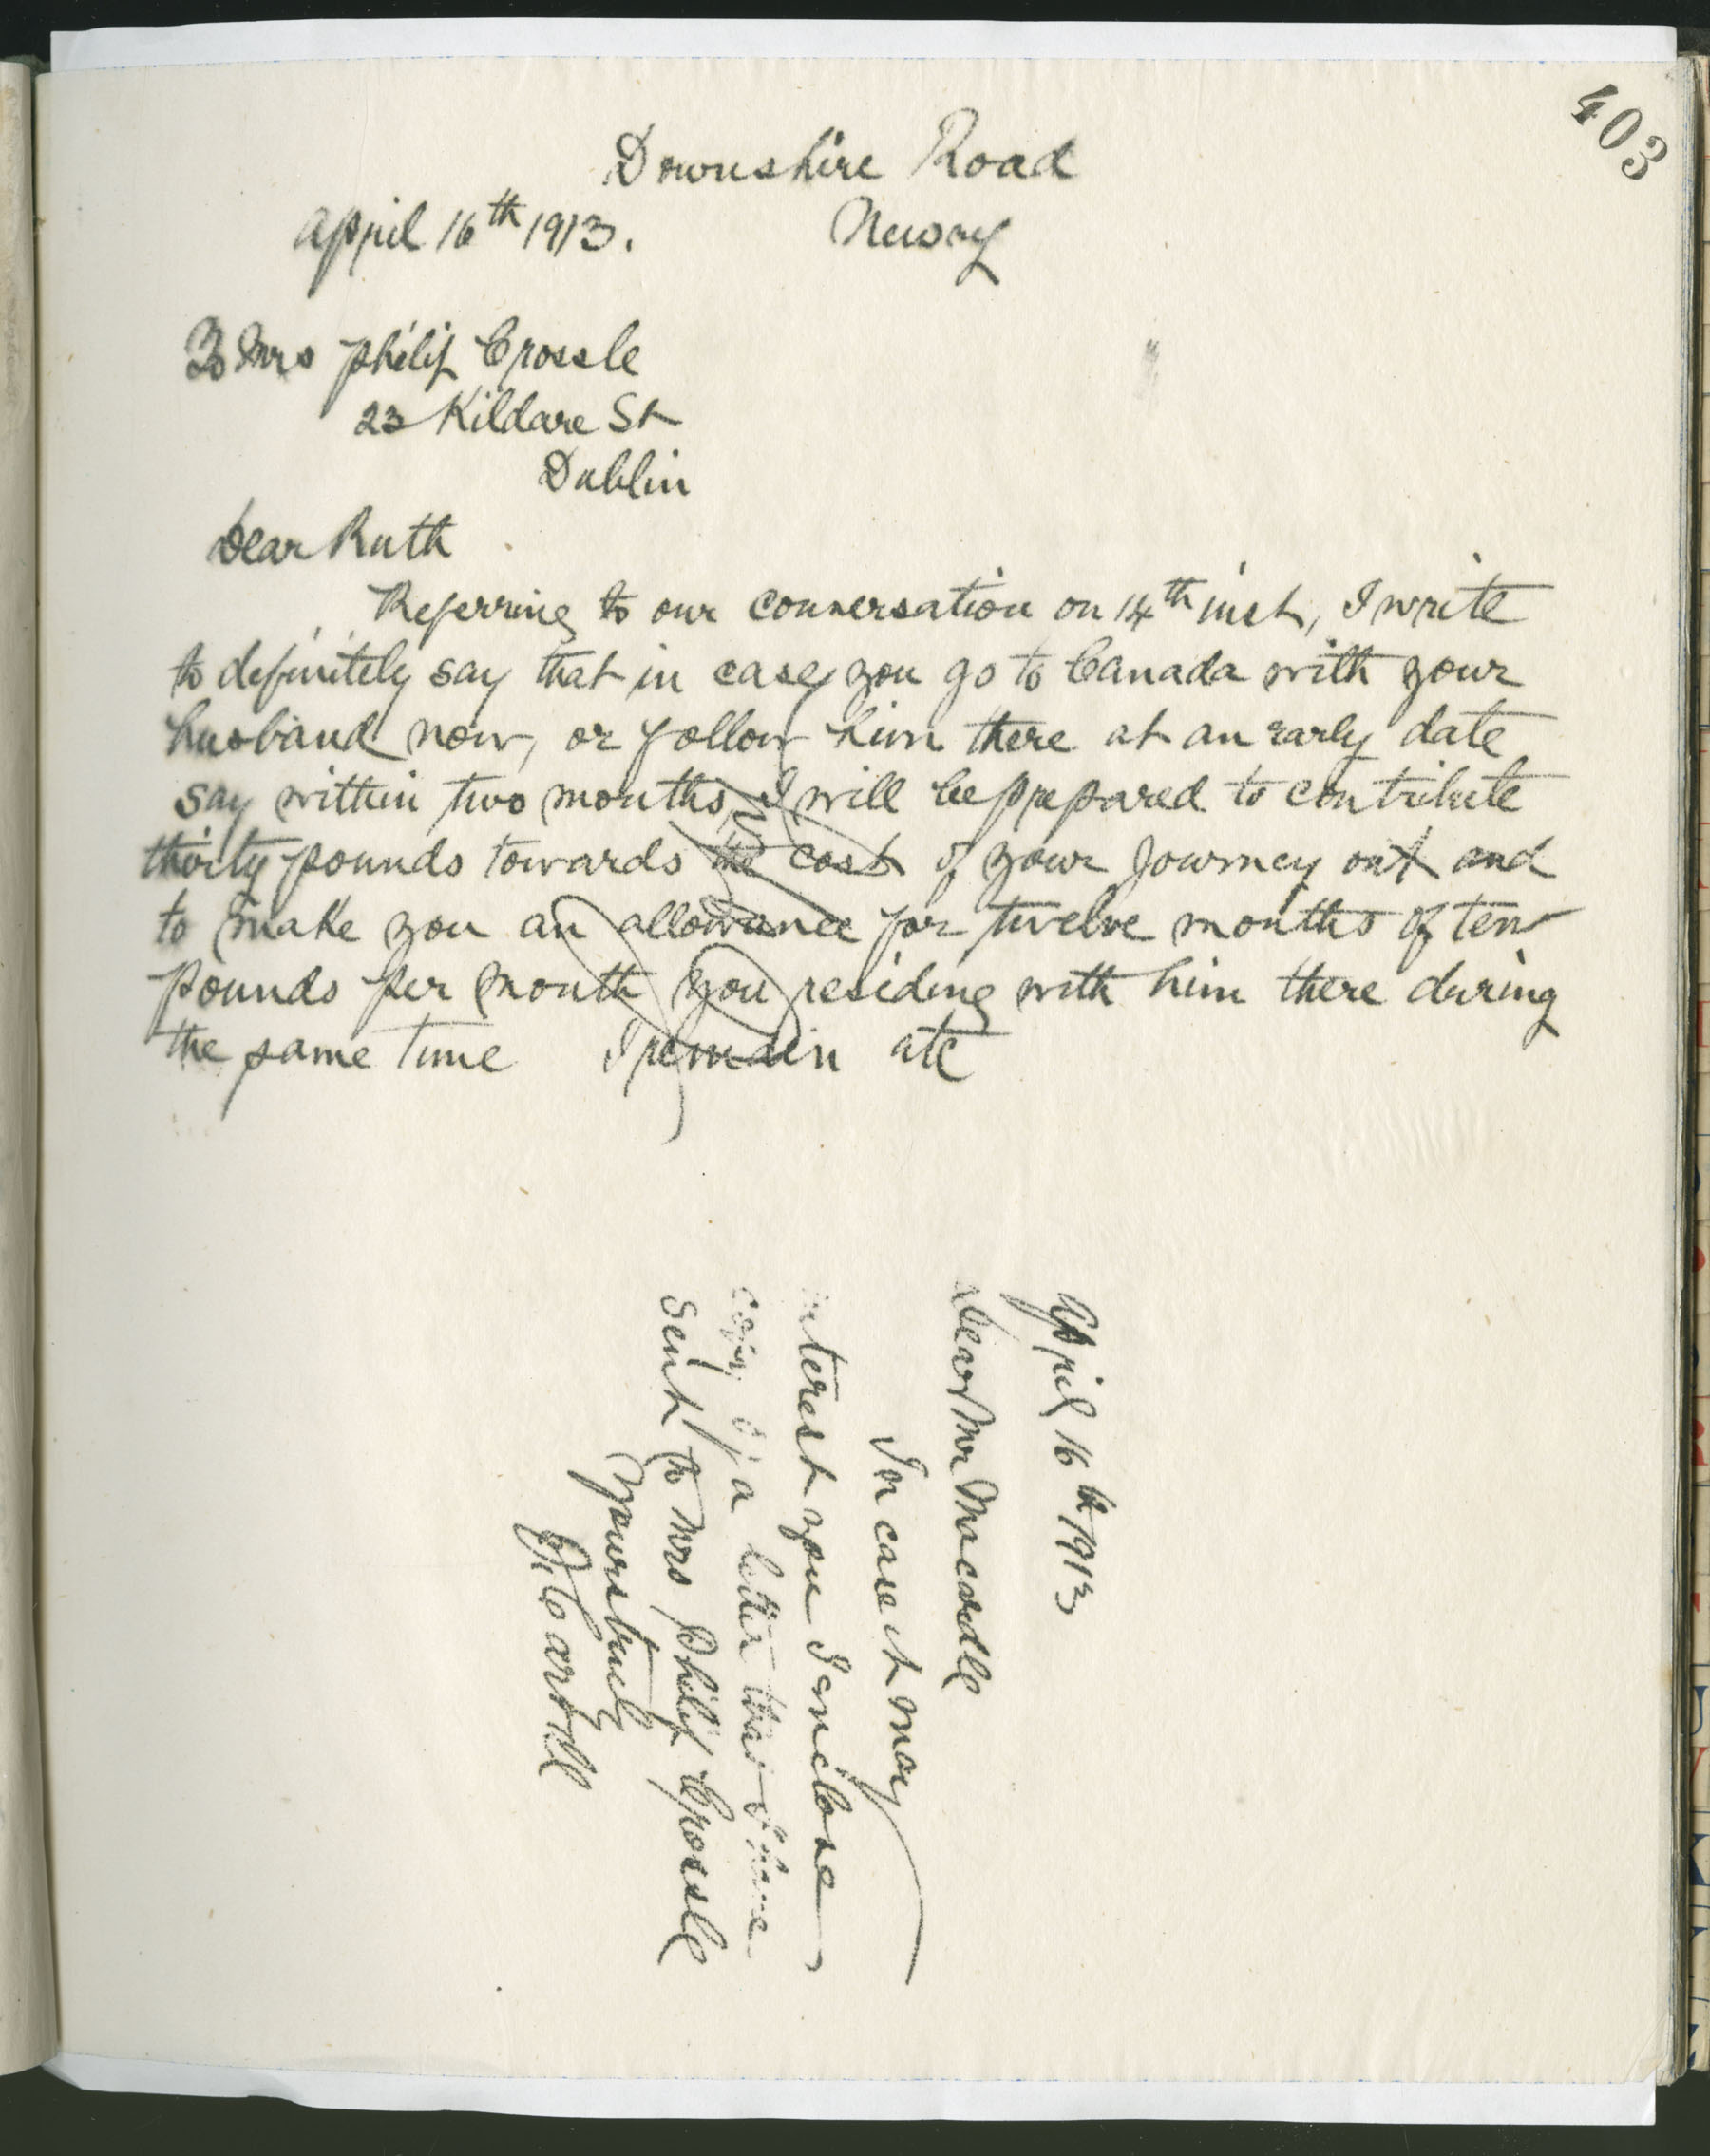 403
Downshire Road
April 16th 1913. Newry
To Mrs Philip Crossle
23 Kildare St
Dublin
Dear Ruth
Referring to our conversation on 14th inst, I write
to definitely say that in case you go to Canada with your
husband now, or follow him there at an early date
say within two months, I will be prepared to contribute
thirty pounds towards the cost of your journey out and
to make you an allowance for twelve months of ten
pounds per month you residing with him there during
the same time I remain etc
April 16th 1913
Dear Mr Macardle
In case it may
interest you I enclose
copy of a letter that I have
sent to Mrs Philip Crossle
Yours truly